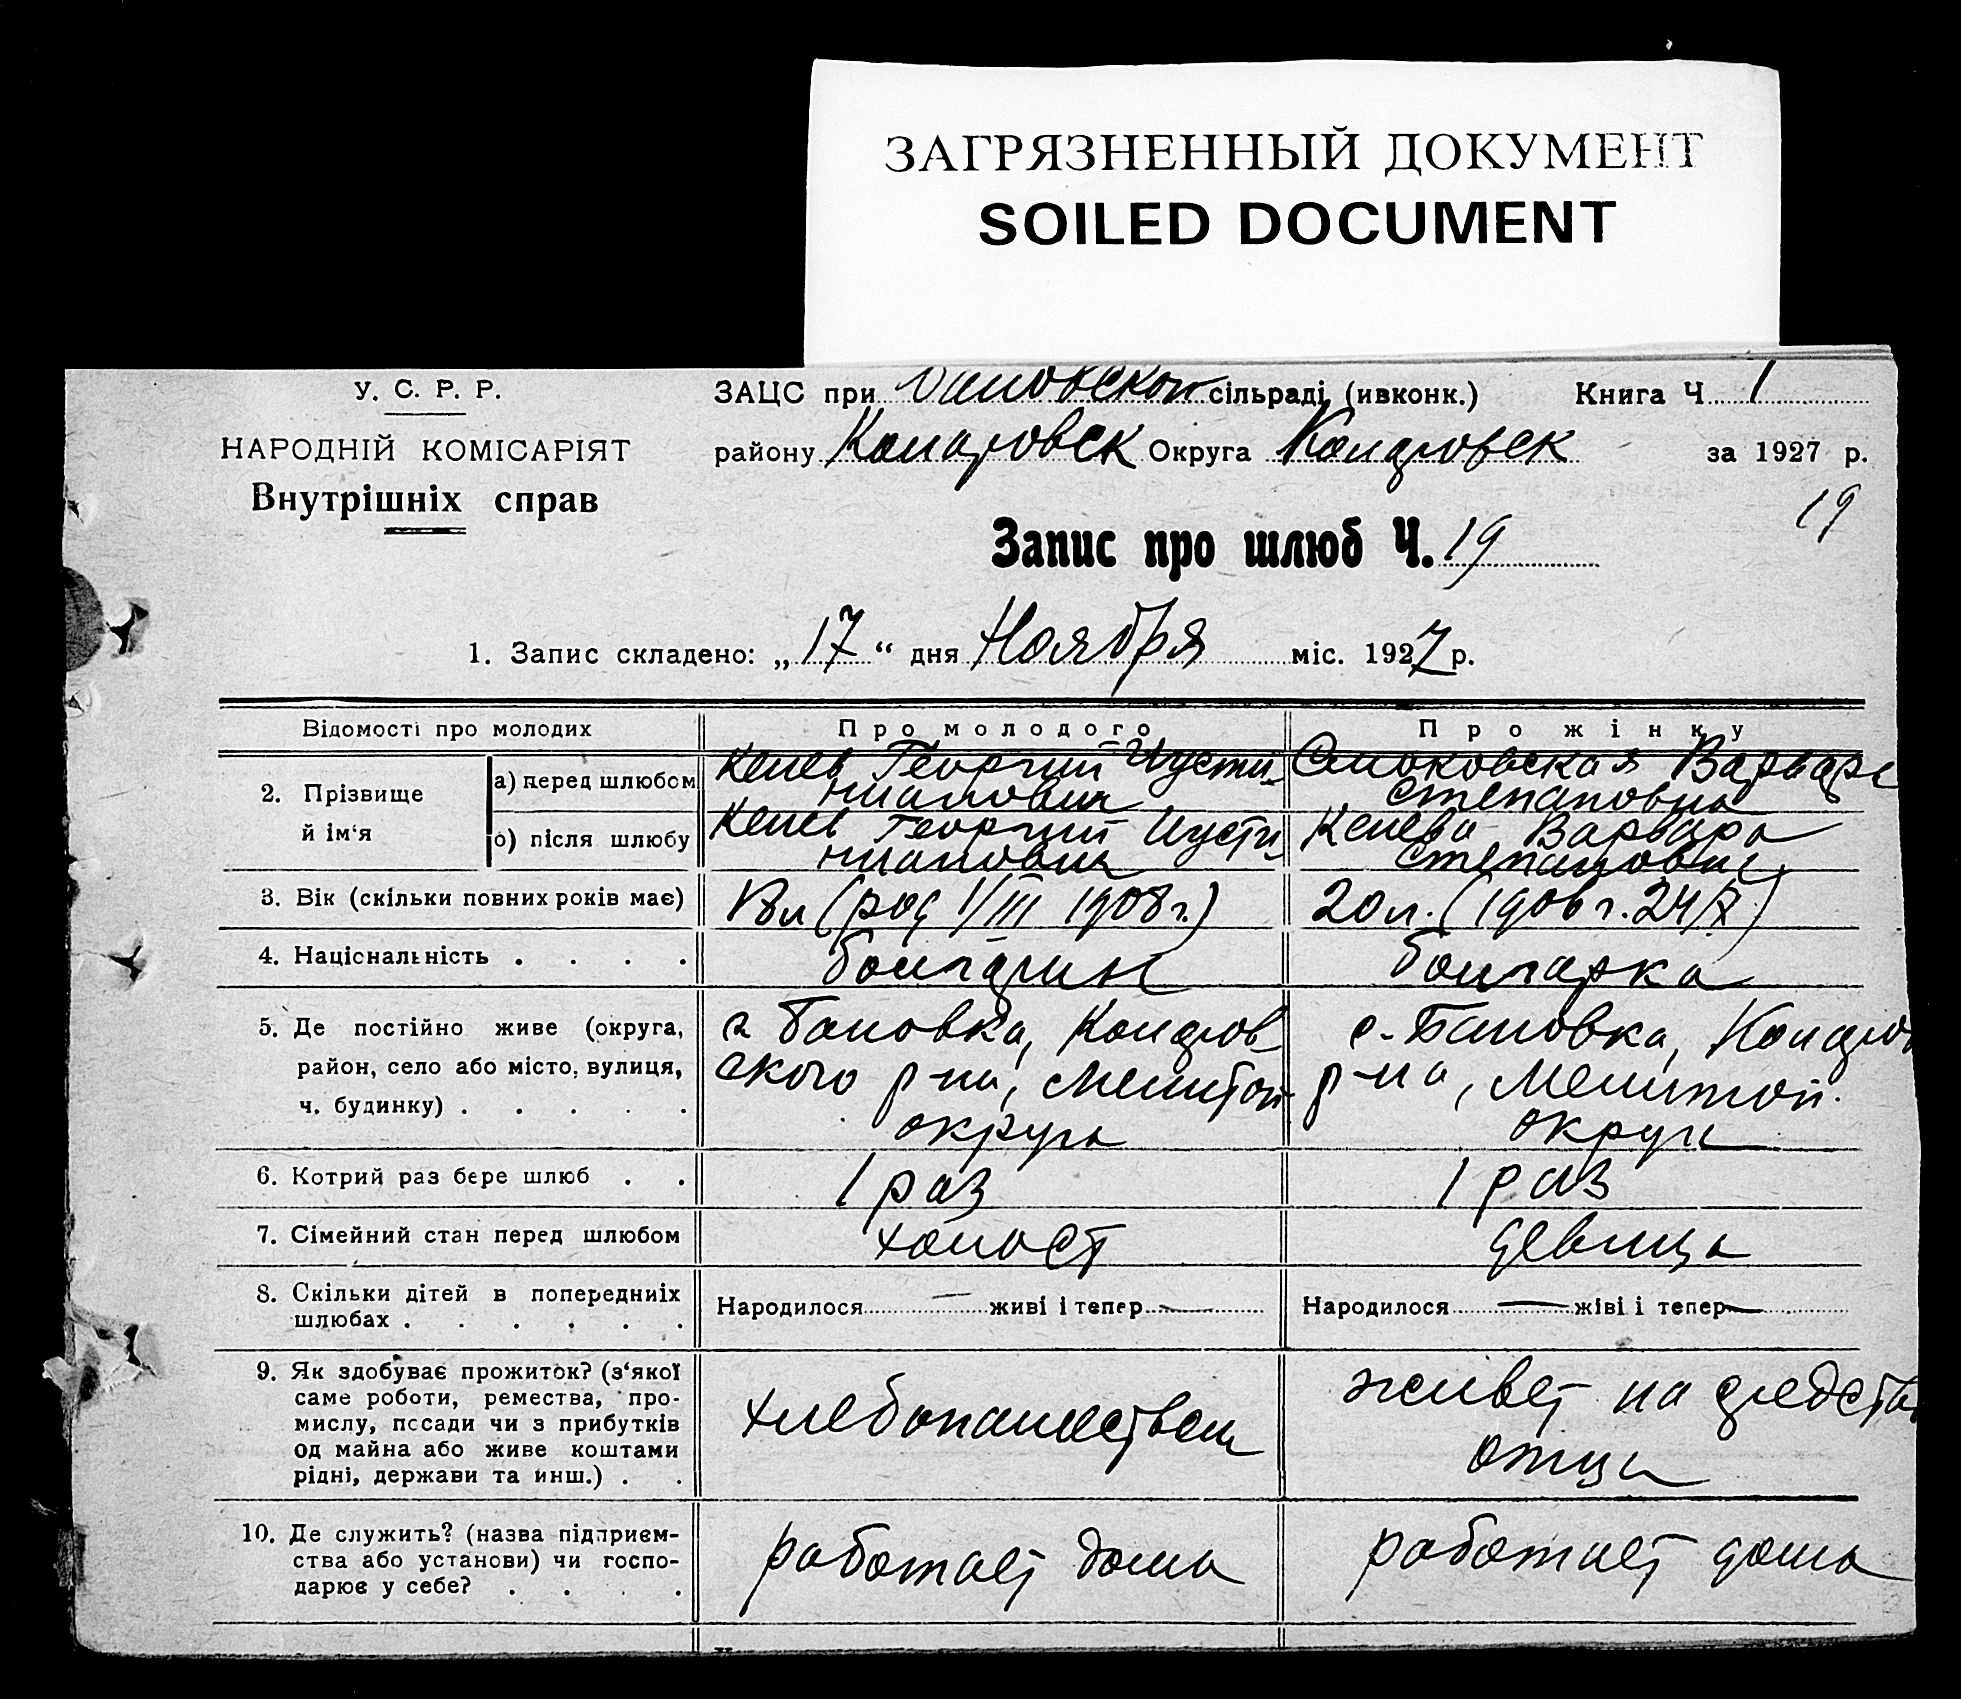 ЗАГРЯЗНЕННЫЙ ДОКУМЕНТ
SOILED DOCUMENT
У. С. Р. Р.
НАРОДНІЙ КОМІСАРІЯТ
Внутрішніх справ
ЗАЦС при сільраді (ивконк.) Книга Ч 1
району Округа за 1927 р.
19
Запис про шлюб Ч. 19
1. Запис складено: „17“ дня Ноября міс. 1927 р.
Відомості про молодих Про молодого Про жінку
2. Прізвище й ім‘я
а) перед шлюбом
Георгий Иусти-
нианович
Варвара
Степановна
б) після шлюбу
Георгий Иусти-
нианович
Варвара
Степановна
3. Вік (скільки повних років має) 18 л (род 1/III 1908 г.) 20 л. (1906 г. 24/X)
4. Національність . . . . болгарин болгарка
5. Де постійно живе (округа,
район, село або місто, вулиця,
ч. будинку) . . . . .
с Бановка,
ского р-на, Мелитоп
округа
с. Бановка,
р-на, Мелитоп.
округа
6. Котрий раз бере шлюб . . 1 раз 1 раз
7. Сімейний стан перед шлюбом холост девица
8. Скільки дітей в попередниіх
шлюбах . . . . . .
Народилося — живі і тепер —
Народилося — жіві і тепер —
9. Як здобуває прожиток? (з‘якої
саме роботи, ремества, про-
мислу, посади чи з прибутків
од майна або живе коштами
рідні, держави та инш.) . .
хлебопашеством
живет на средства
отца
10. Де служить? (назва підприєм-
ства або установи) чи госпо-
дарює у себе? . . . .
работает дома
работает дома